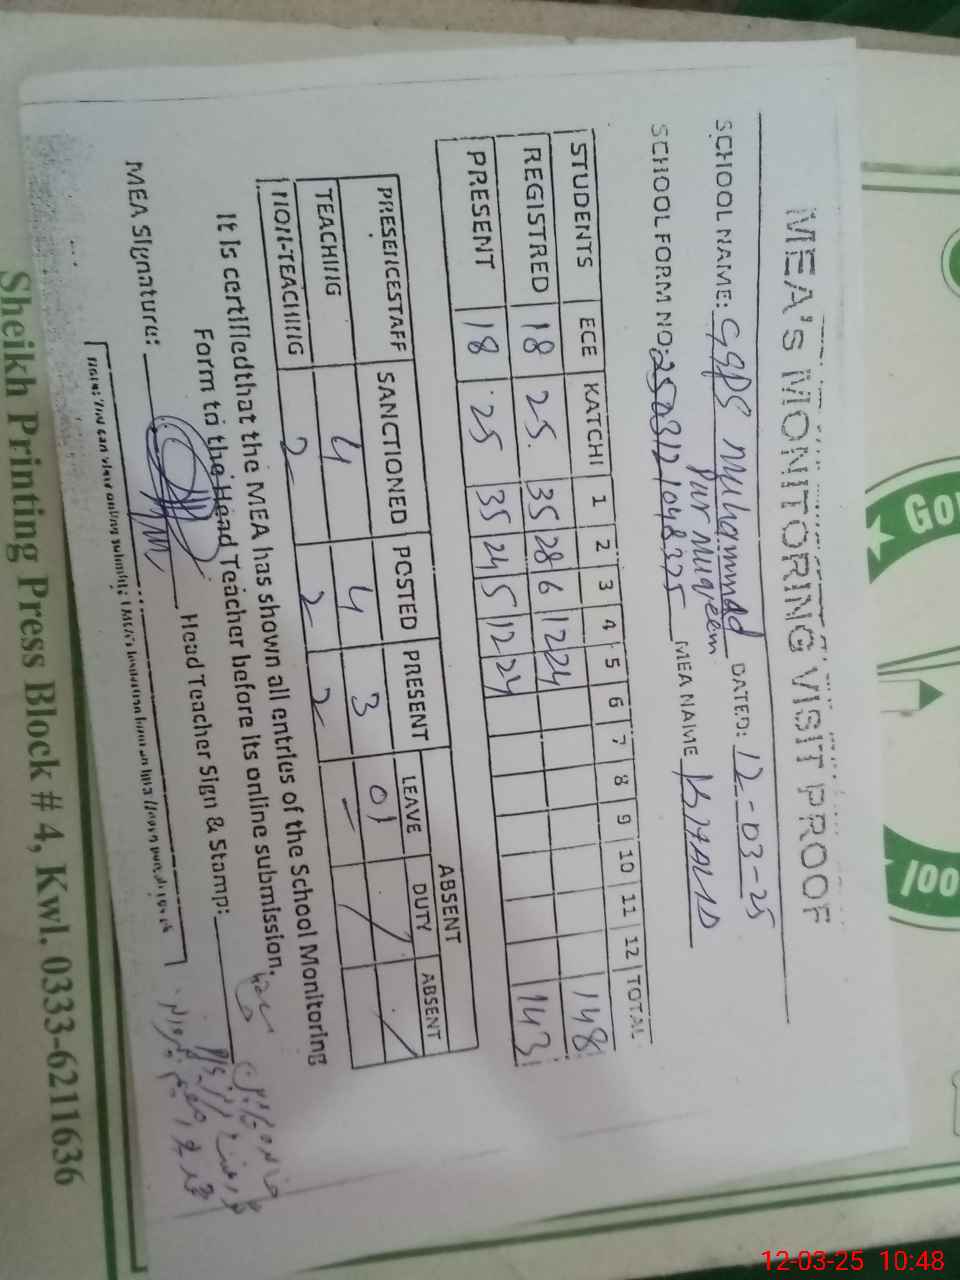 MEA's MONITORING VISIT PROOF
SCHOOL NAME: GGPS Muhammad Pur Muqeem DATED: 12-03-25
SCHOOL FORM NO: MEA NAME
STUDENTS ECE KATCHI 1 2 3 4 5 6 7 8 9 10 11 12 TOTAL
REGISTRED 18 25. 35 28 6 12 24 148
PRESENT 18 25 35 24 5 12 24 143
ABSENT
PRESENCESTAFF SANCTIONED POSTED PRESENT LEAVE DUTY ABSENT
TEACHING 4 4 3 01 /
NON-TEACHING 2 2 2 — /
It is certifiedthat the MEA has shown all entries of the School Monitoring
Form to the Head Teacher before its online submission.
MEA Signature: Head Teacher Sign & Stamp:
Sheikh Printing Press Block # 4, Kwl. 0333-6211636
Gov
12-03-25 10:48